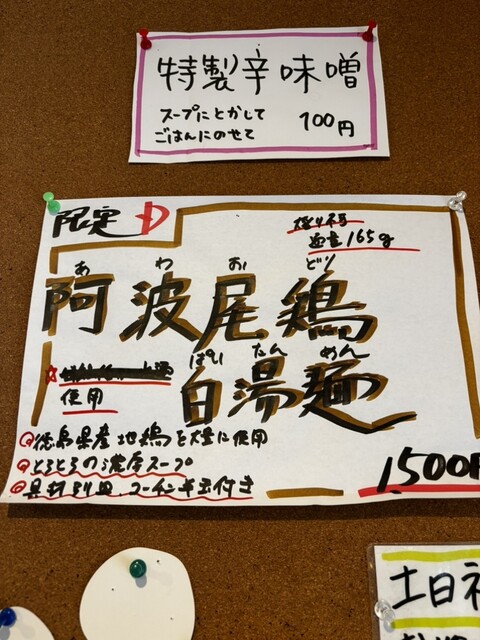 特製辛味噌
スープにとかして
ごはんにのせて
100円
限定 D
麺量165g
あわおどり
阿波尾鶏
ぱいたんめん
白湯麺
使用
徳島県産地鶏を大量に使用
とろとろの濃厚スープ
具材別皿、コーチン半玉付き
1,500円
土日祝